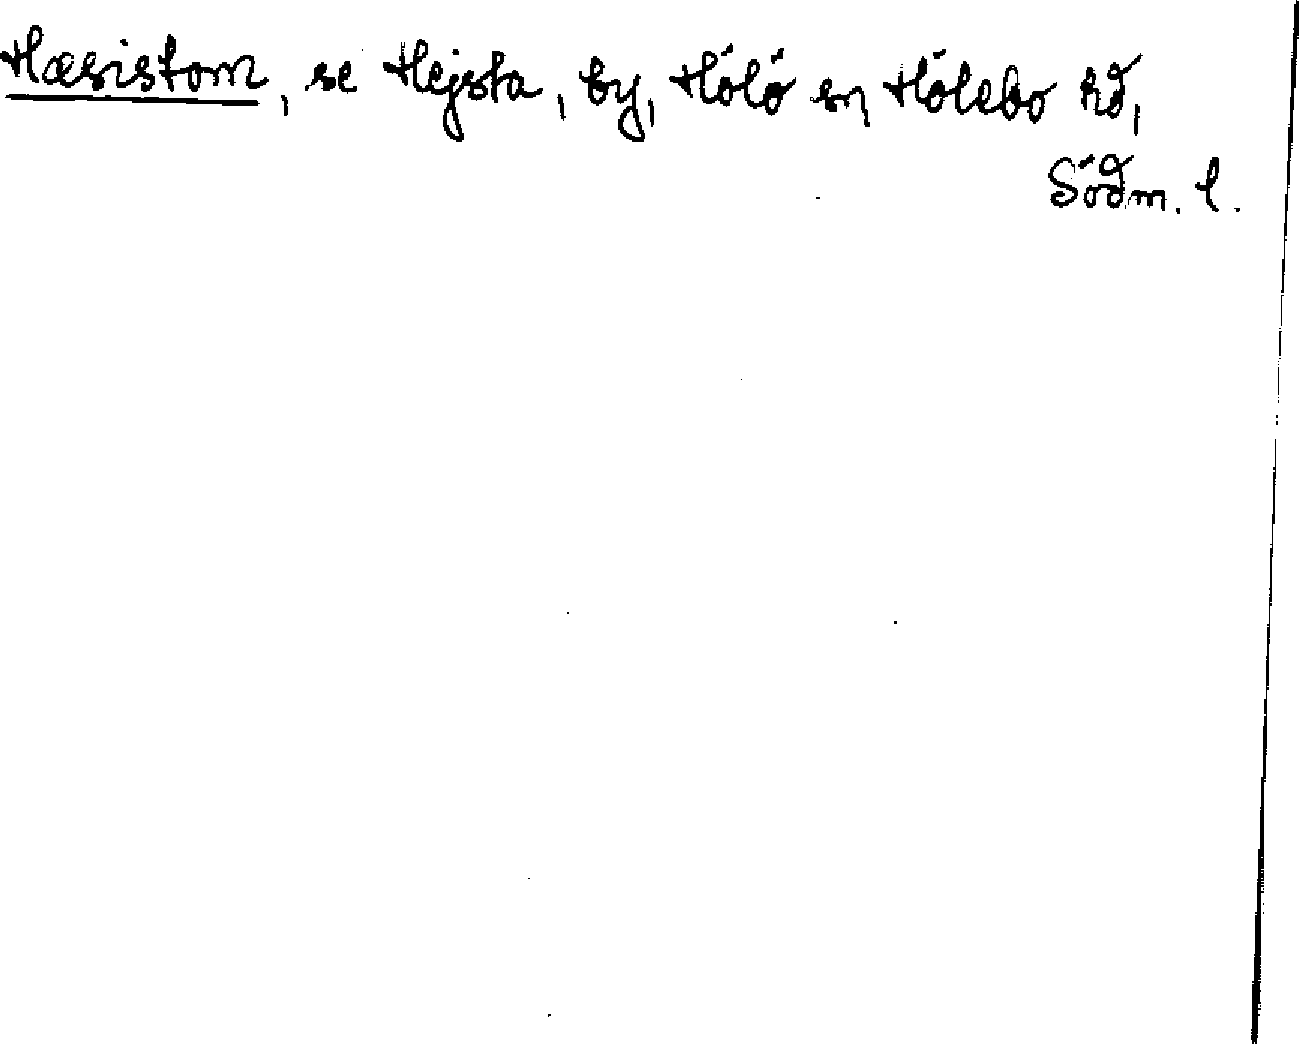 Hæsistom, se Hejsta, by, Hölö sn, Hölebo hd,
Södm. l.